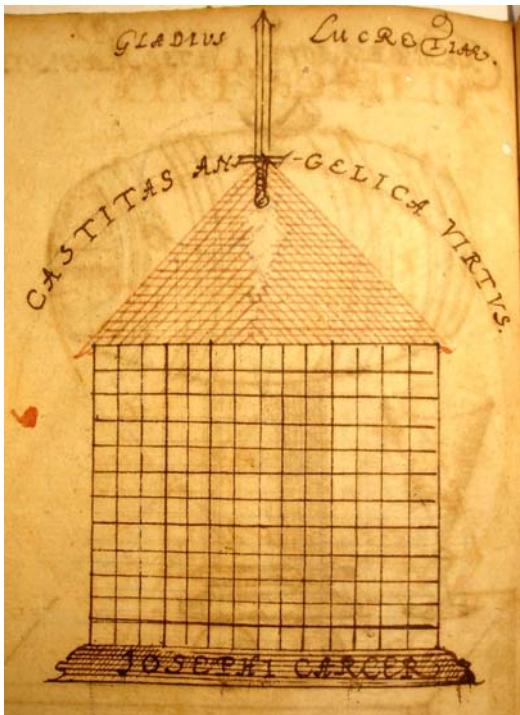 GLADIVS LUCRETIAE.
CASTITAS AN-GELICA VIRTVS.
JOSEPHI CARCER